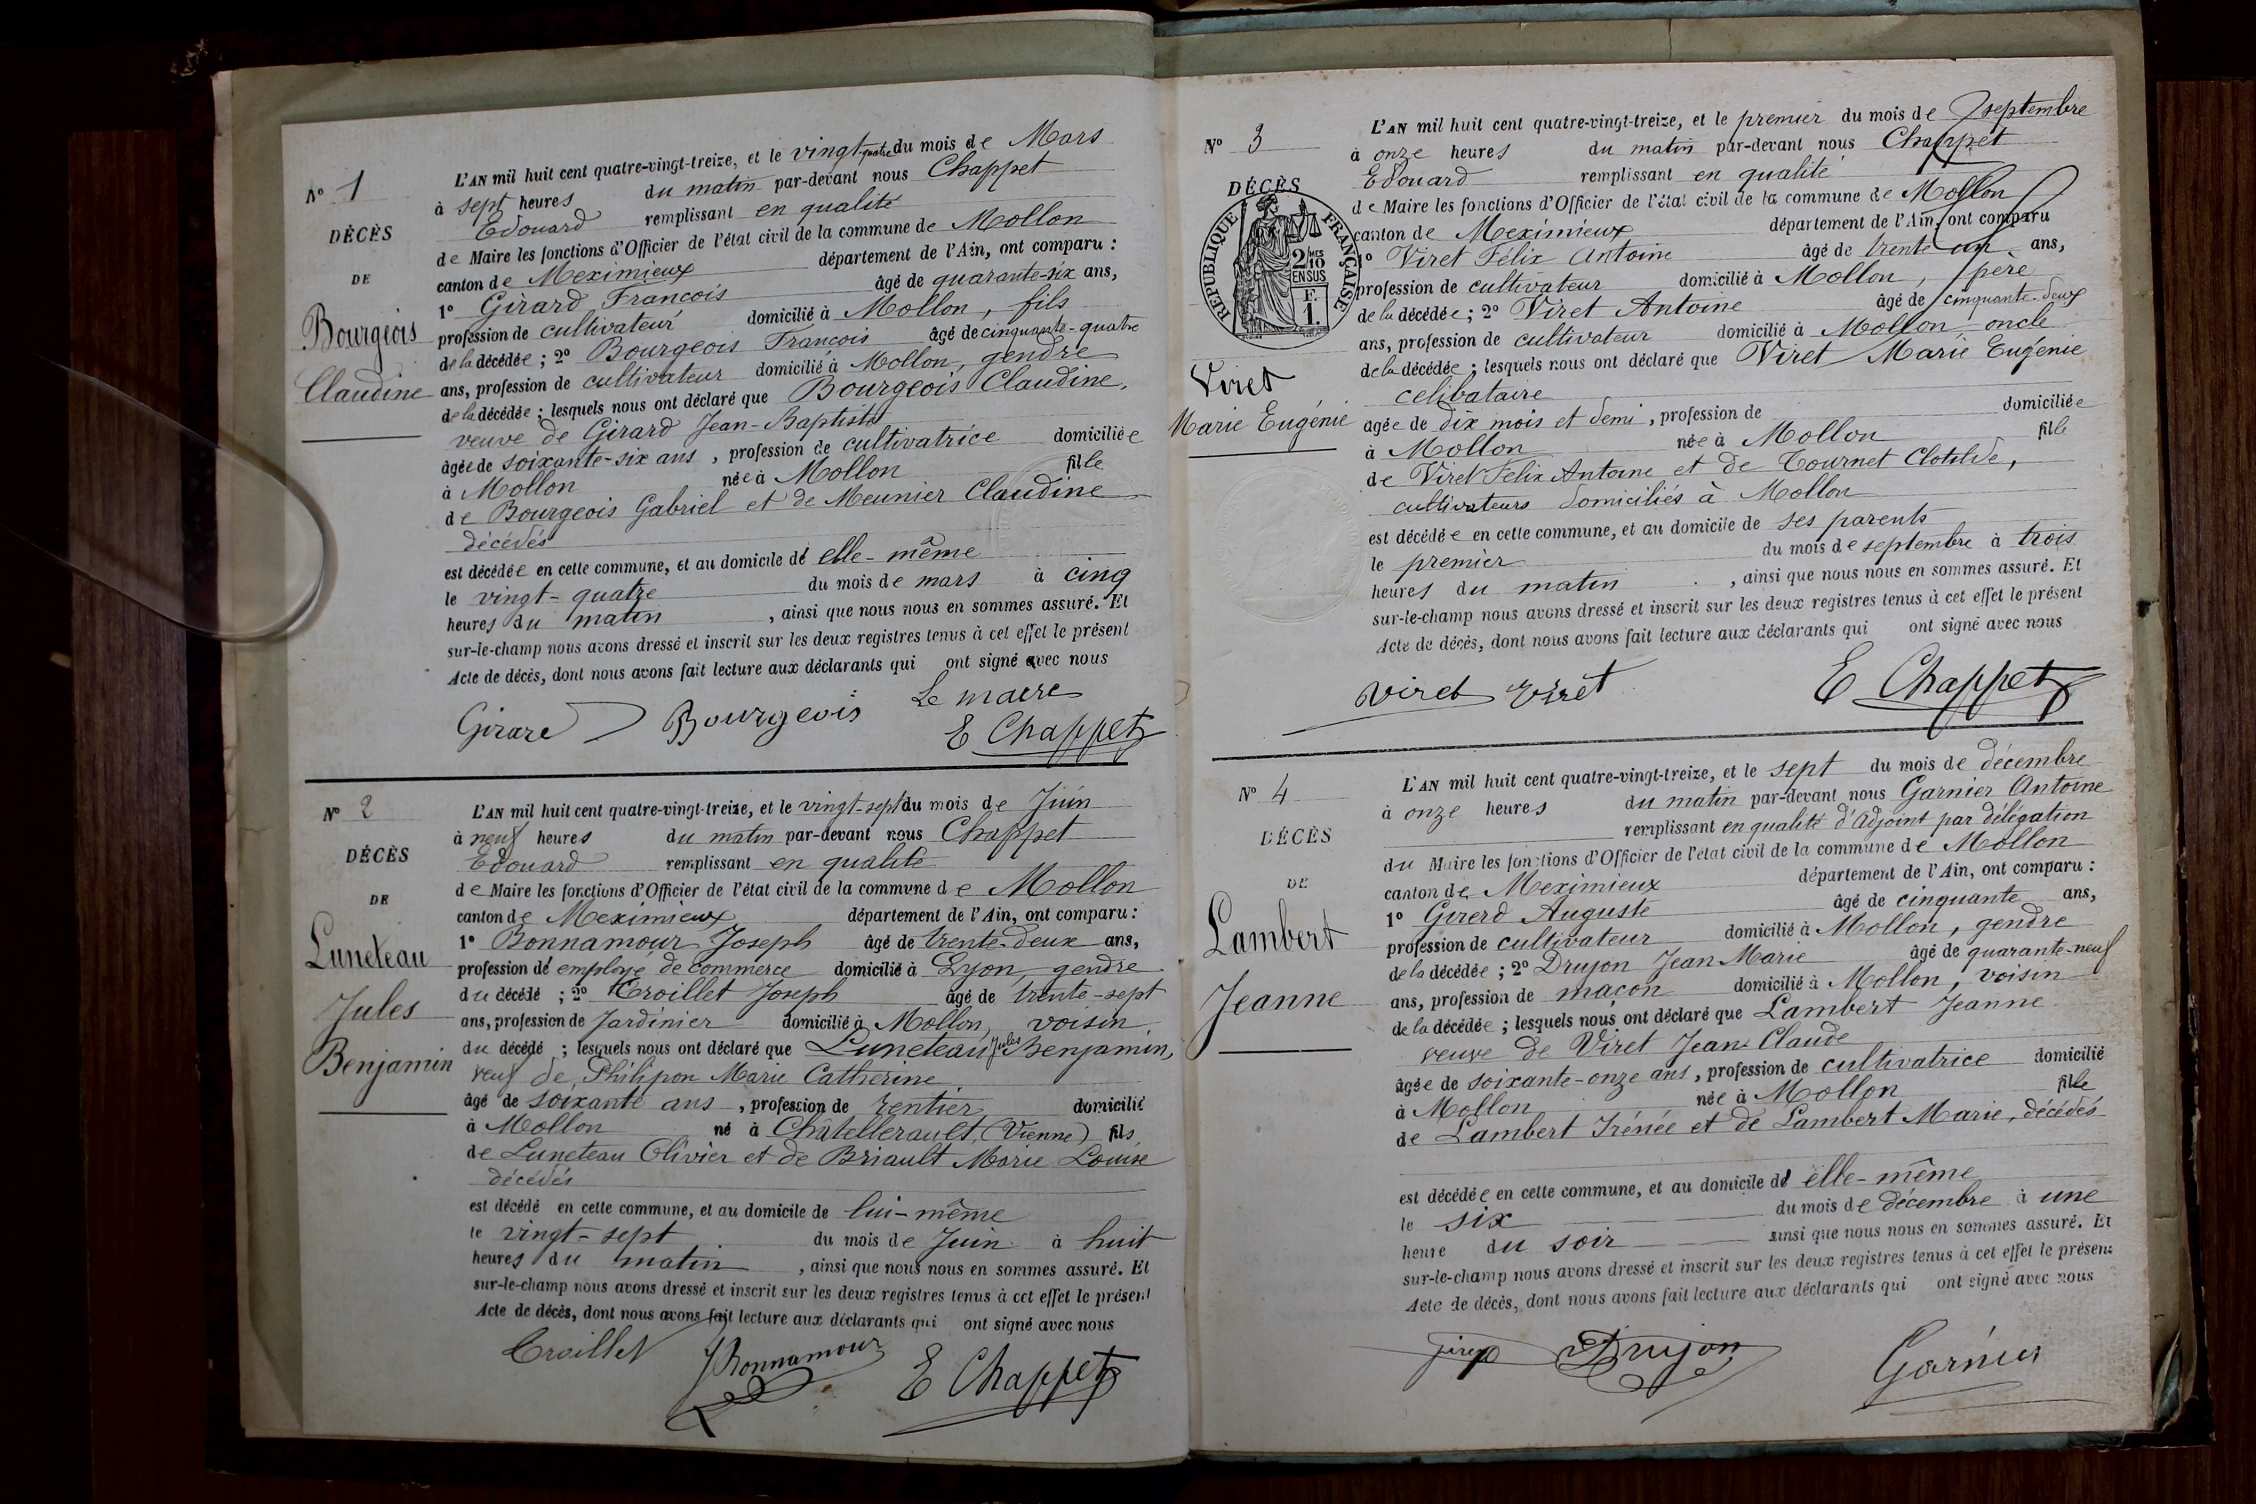 N° 1
DÉCÈS
DE
Bourgeois
Claudine
L'AN mil huit cent quatre-vingt-treize, et le vingt-quatre du mois de Mars
à sept heures du matin par-devant nous Chappet
Edouard remplissant en qualité
de Maire les fonctions d'Officier de l'état civil de la commune de Mollon
canton de Meximieux département de l'Ain, ont comparu :
1° Girard François âgé de quarante-six ans,
profession de cultivateur domicilié à Mollon, fils
de la décédée ; 2° Bourgeois François âgé de cinquante-quatre
ans, profession de cultivateur domicilié à Mollon, gendre
de la décédée ; lesquels nous ont déclaré que Bourgeois Claudine,
veuve de Girard Jean-Baptiste
âgée de soixante-six ans, profession de cultivatrice domiciliée
à Mollon née à Mollon fille
de Bourgeois Gabriel et de Meunier Claudine
décédés
est décédée en cette commune, et au domicile de elle-même
le vingt-quatre du mois de mars à cinq
heures du matin, ainsi que nous nous en sommes assuré. Et
sur-le-champ nous avons dressé et inscrit sur les deux registres tenus à cet effet le présent
Acte de décès, dont nous avons fait lecture aux déclarants qui ont signé avec nous
Le maire
Girard Bourgeois E Chappet
N° 2
DÉCÈS
DE
Luneteau
Jules
Benjamin
L'AN mil huit cent quatre-vingt-treize, et le vingt-sept du mois de Juin
à neuf heures du matin par-devant nous Chappet
Edouard remplissant en qualité
de Maire les fonctions d'Officier de l'état civil de la commune de Mollon
canton de Meximieux département de l'Ain, ont comparu :
1° Bonnamour Joseph âgé de trente-deux ans,
profession de employé de commerce domicilié à Lyon, gendre
du décédé ; 2° Croillet Joseph âgé de trente-sept
ans, profession de Jardinier domicilié à Mollon, voisin
du décédé ; lesquels nous ont déclaré que Luneteau Jules Benjamin,
veuf de Philipon Marie Catherine
âgé de soixante ans, profession de rentier domicilié
à Mollon né à Chatellerault (Vienne) fils
de Luneteau Olivier et de Briault Marie Louise
décédés
est décédé en cette commune, et au domicile de lui-même
le vingt-sept du mois de Juin à huit
heures du matin, ainsi que nous nous en sommes assuré. Et
sur-le-champ nous avons dressé et inscrit sur les deux registres tenus à cet effet le présent
Acte de décès, dont nous avons fait lecture aux déclarants qui ont signé avec nous
Croillet J Bonnamour E Chappet
N° 3
DÉCÈS
REPUBLIQUE FRANÇAISE
2 MES
10
EN SUS
F.
1.
Viret
Marie Eugénie
L'AN mil huit cent quatre-vingt-treize, et le premier du mois de septembre
à onze heures du matin par-devant nous Chappet
Edouard remplissant en qualité
de Maire les fonctions d'Officier de l'état civil de la commune de Mollon
canton de Meximieux département de l'Ain, ont comparu
1° Viret Félix Antoine âgé de trente un ans,
profession de cultivateur domicilié à Mollon, père
de la décédée ; 2° Viret Antoine âgé de cinquante-deux
ans, profession de cultivateur domicilié à Mollon, oncle
de la décédée ; lesquels nous ont déclaré que Viret Marie Eugénie
celibataire
agée de dix mois et demi, profession de domiciliée
à Mollon née à Mollon fille
de Viret Félix Antoine et de Tournet Clotilde,
cultivateurs domiciliés à Mollon
est décédée en cette commune, et au domicile de ses parents
le premier du mois de septembre à trois
heures du matin, ainsi que nous nous en sommes assuré. Et
sur-le-champ nous avons dressé et inscrit sur les deux registres tenus à cet effet le présent
Acte de décès, dont nous avons fait lecture aux déclarants qui ont signé avec nous
Viret Viret E Chappet
N° 4
DÉCÈS
DE
Lambert
Jeanne
L'AN mil huit cent quatre-vingt-treize, et le sept du mois de décembre
à onze heures du matin par-devant nous Garnier Antoine
remplissant en qualité d'Adjoint par délégation
du Maire les fonctions d'Officier de l'état civil de la commune de Mollon
canton de Meximieux département de l'Ain, ont comparu :
1° Girerd Auguste âgé de cinquante ans,
profession de cultivateur domicilié à Mollon, gendre
de la décédée ; 2° Drujon Jean Marie âgé de quarante-neuf
ans, profession de maçon domicilié à Mollon, voisin
de la décédée ; lesquels nous ont déclaré que Lambert Jeanne
veuve de Viret Jean Claude
âgée de soixante-onze ans, profession de cultivatrice domicilié
à Mollon née à Mollon fille
de Lambert Irénée et de Lambert Marie, décédés
est décédée en cette commune, et au domicile de elle-même
le six du mois de décembre à une
heure du soir ainsi que nous nous en sommes assuré. Et
sur-le-champ nous avons dressé et inscrit sur les deux registres tenus à cet effet le présent
Acte de décès, dont nous avons fait lecture aux déclarants qui ont signé avec nous
Drujon Garnier